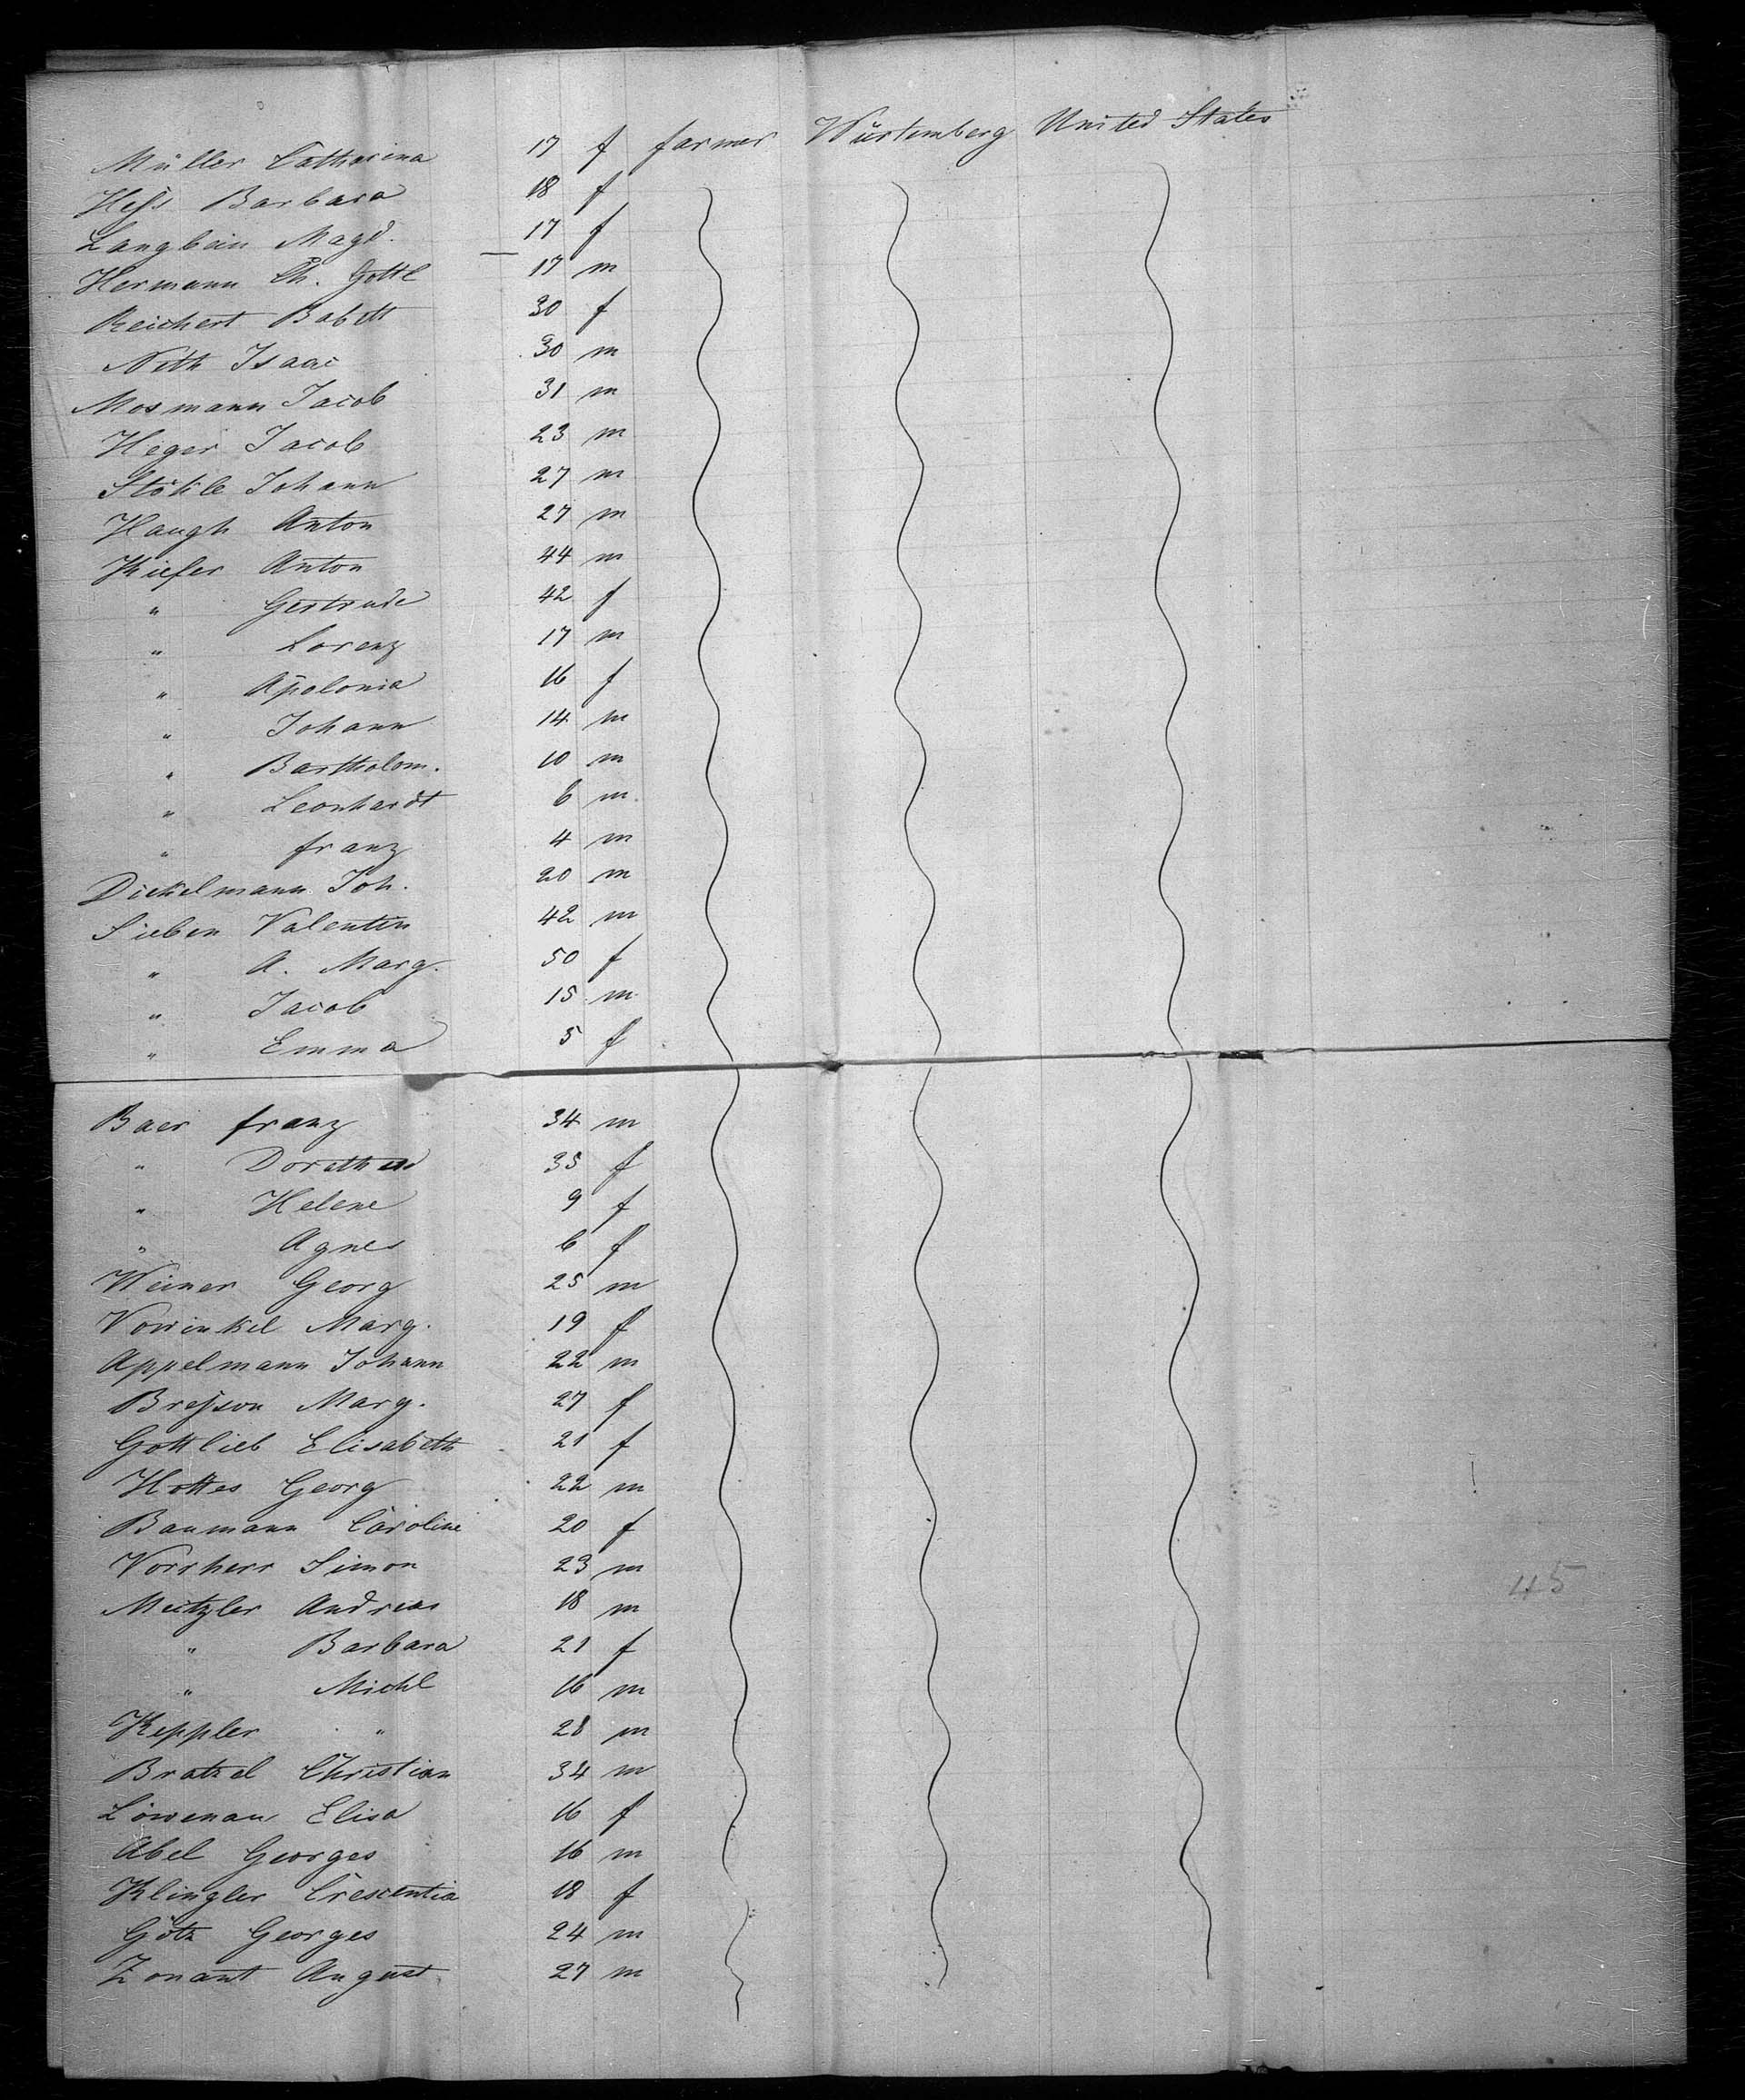 Müller Catharina 17 f farmer Würtemberg United States
Heſs Barbara 18 f
Langbein Magd. 17 f
Hermann Ch. Gottl 17 m
Reichert Babett 30 f
Neth Isaac 30 m
Mosmann Jacob 31 m
Heger Jacob 23 m
Stökle Johann 27 m
Haugh Anton 27 m
Kiefer Anton 44 m
" Gertrude 42 f
" Lorenz 17 m
" Apolonia 16 f
" Johann 14 m
" Bartholom. 10 m
" Leonhardt 6 m
" franz 4 m
Dickelmann Joh. 20 m
Sieben Valentin 42 m
" A. Marg. 50 f
" Jacob 15 m
" Emma 5 f
Baer franz 34 m
" Dorothea 35 f
" Helene 9 f
" Agnes 6 f
Weiner Georg 25 m
Vowinkel Marg. 19 f
Appelmann Johann 22 m
Breſson Marg. 27 f
Gottlieb Elisabeth 21 f
Hottes Georg 22 m
Baumann Caroline 20 f
Vorsherr Simon 23 m
Meitzler Andreas 18 m
" Barbara 21 f
" Michl 16 m
Keppler " 28 m
Bratzel Christian 34 m
Löwenau Elisa 16 f
Abel Georges 16 m
Klingler Crescentia 18 f
Götz Georges 24 m
Zonant August 27 m
45